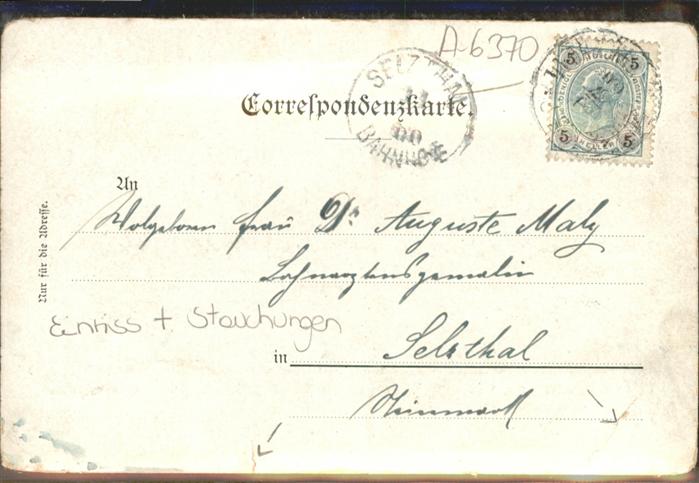 A-6370
SELZTHAL
11
00
BAHNHOF
5 5
5 5
Correſpondenzkarte.
An
Wolgeboren Frau Dr Auguste Maly
Bahnarztensgemalin
Nur für die Adreſſe.
Einriss + Stauchungen
in Selzthal
Steiermark